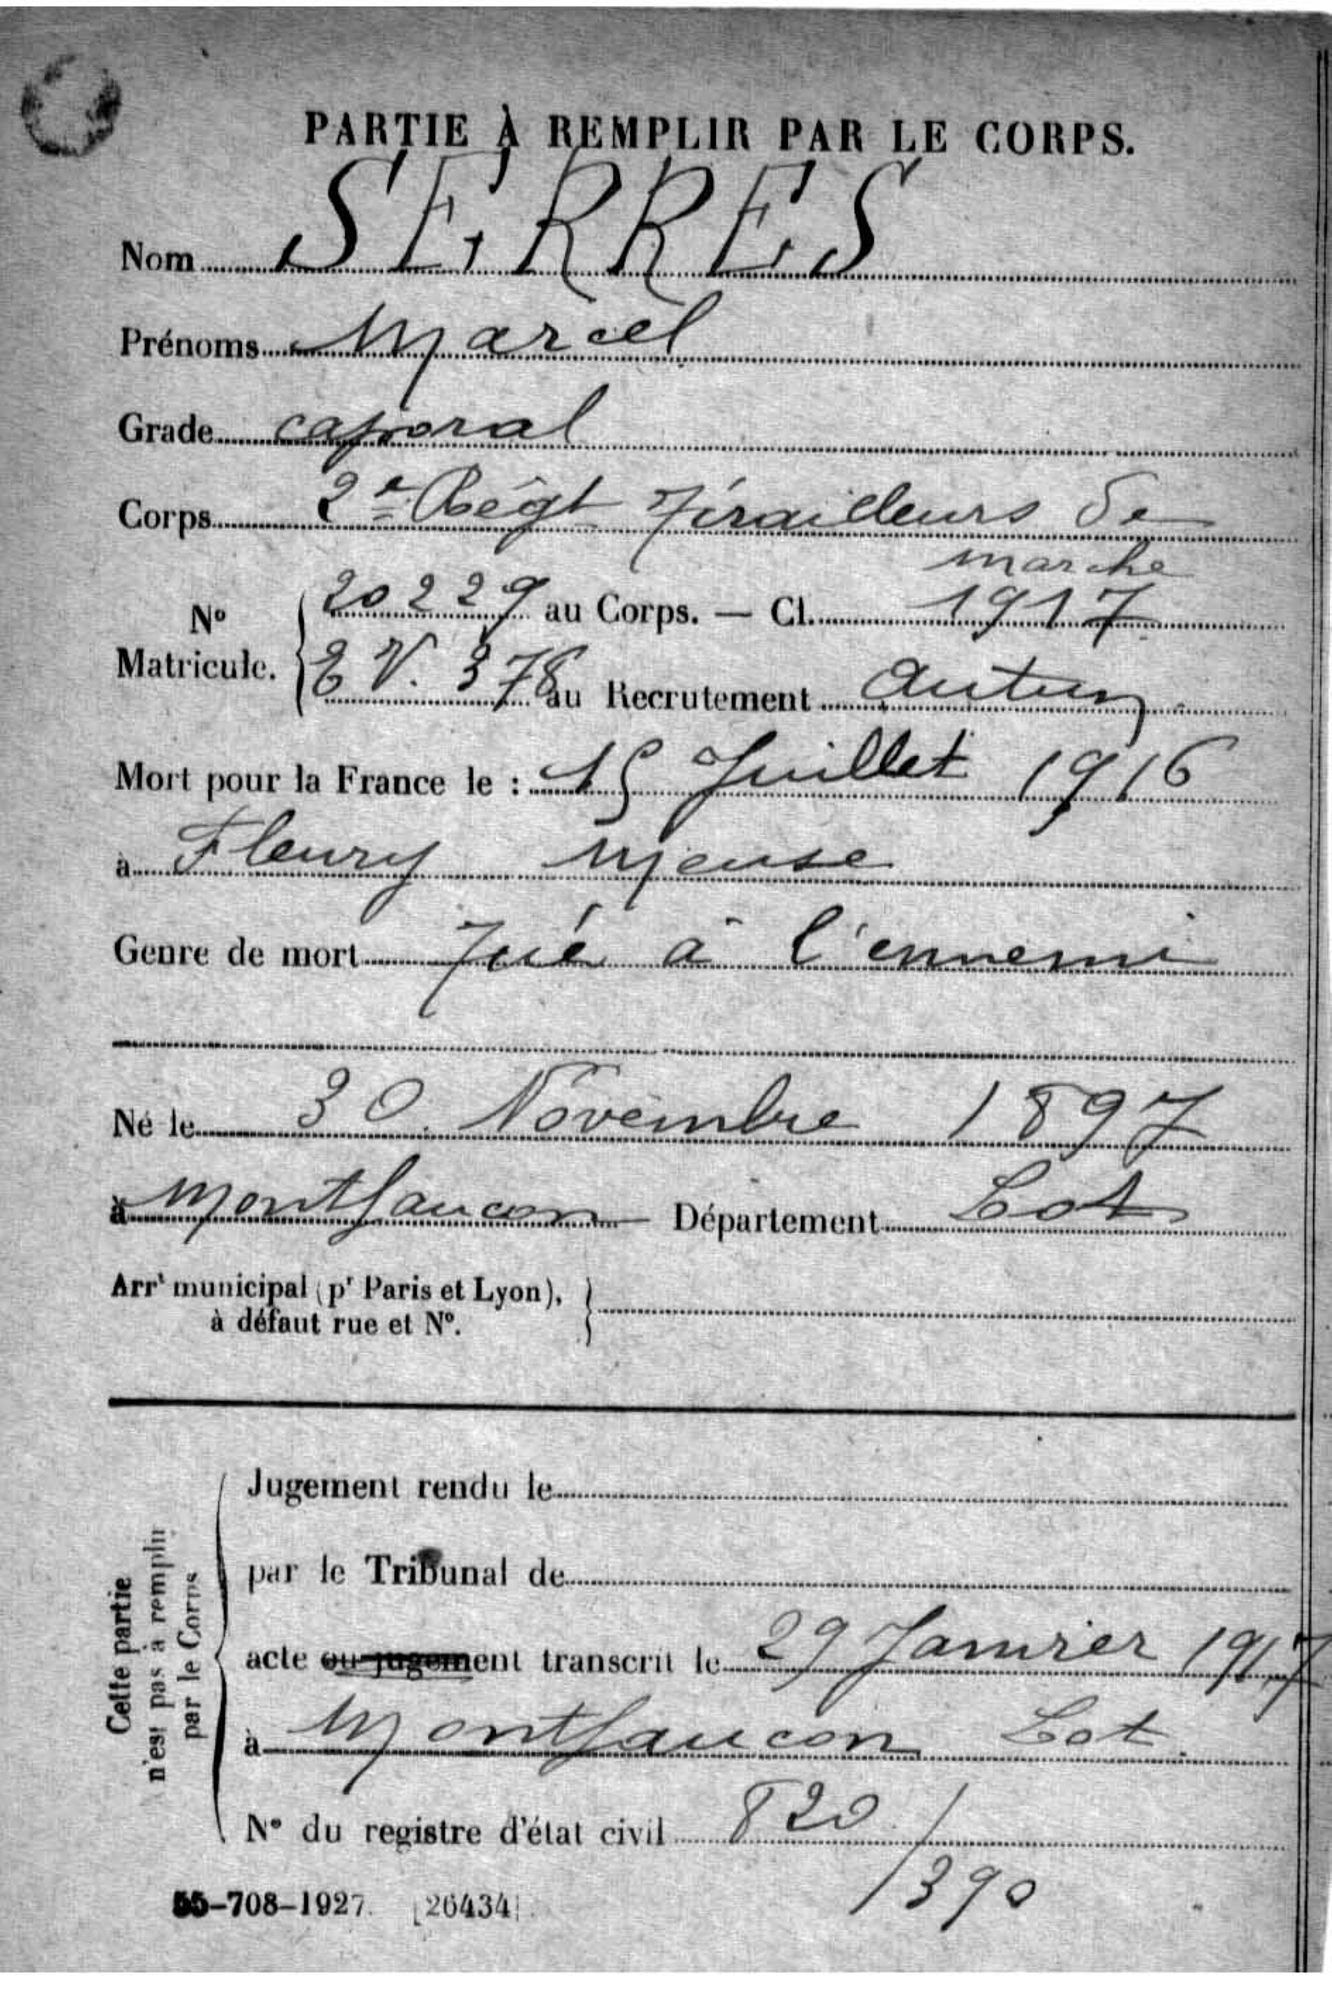 PARTIE À REMPLIR PAR LE CORPS.
Nom SERRES
Prénoms Marcel
Grade caporal
Corps 2e Régt Tirailleurs de
marche
No Matricule. { 20229 au Corps. — Cl. 1917
E V. 378 au Recrutement Autun
Mort pour la France le : 15 Juillet 1916
à Fleury Meuse
Genre de mort Tué à l'ennemi
Né le 30 Novembre 1897
à Montfaucon Département Lot
Arrt municipal (pr Paris et Lyon),
à défaut rue et No.
Cette partie
n'est pas à remplir
par le Corps
Jugement rendu le
par le Tribunal de
acte ou jugement transcrit le 29 Janvier 1917
à Montfaucon Lot.
No du registre d'état civil 820/
1390
55-708-1927. [26434].